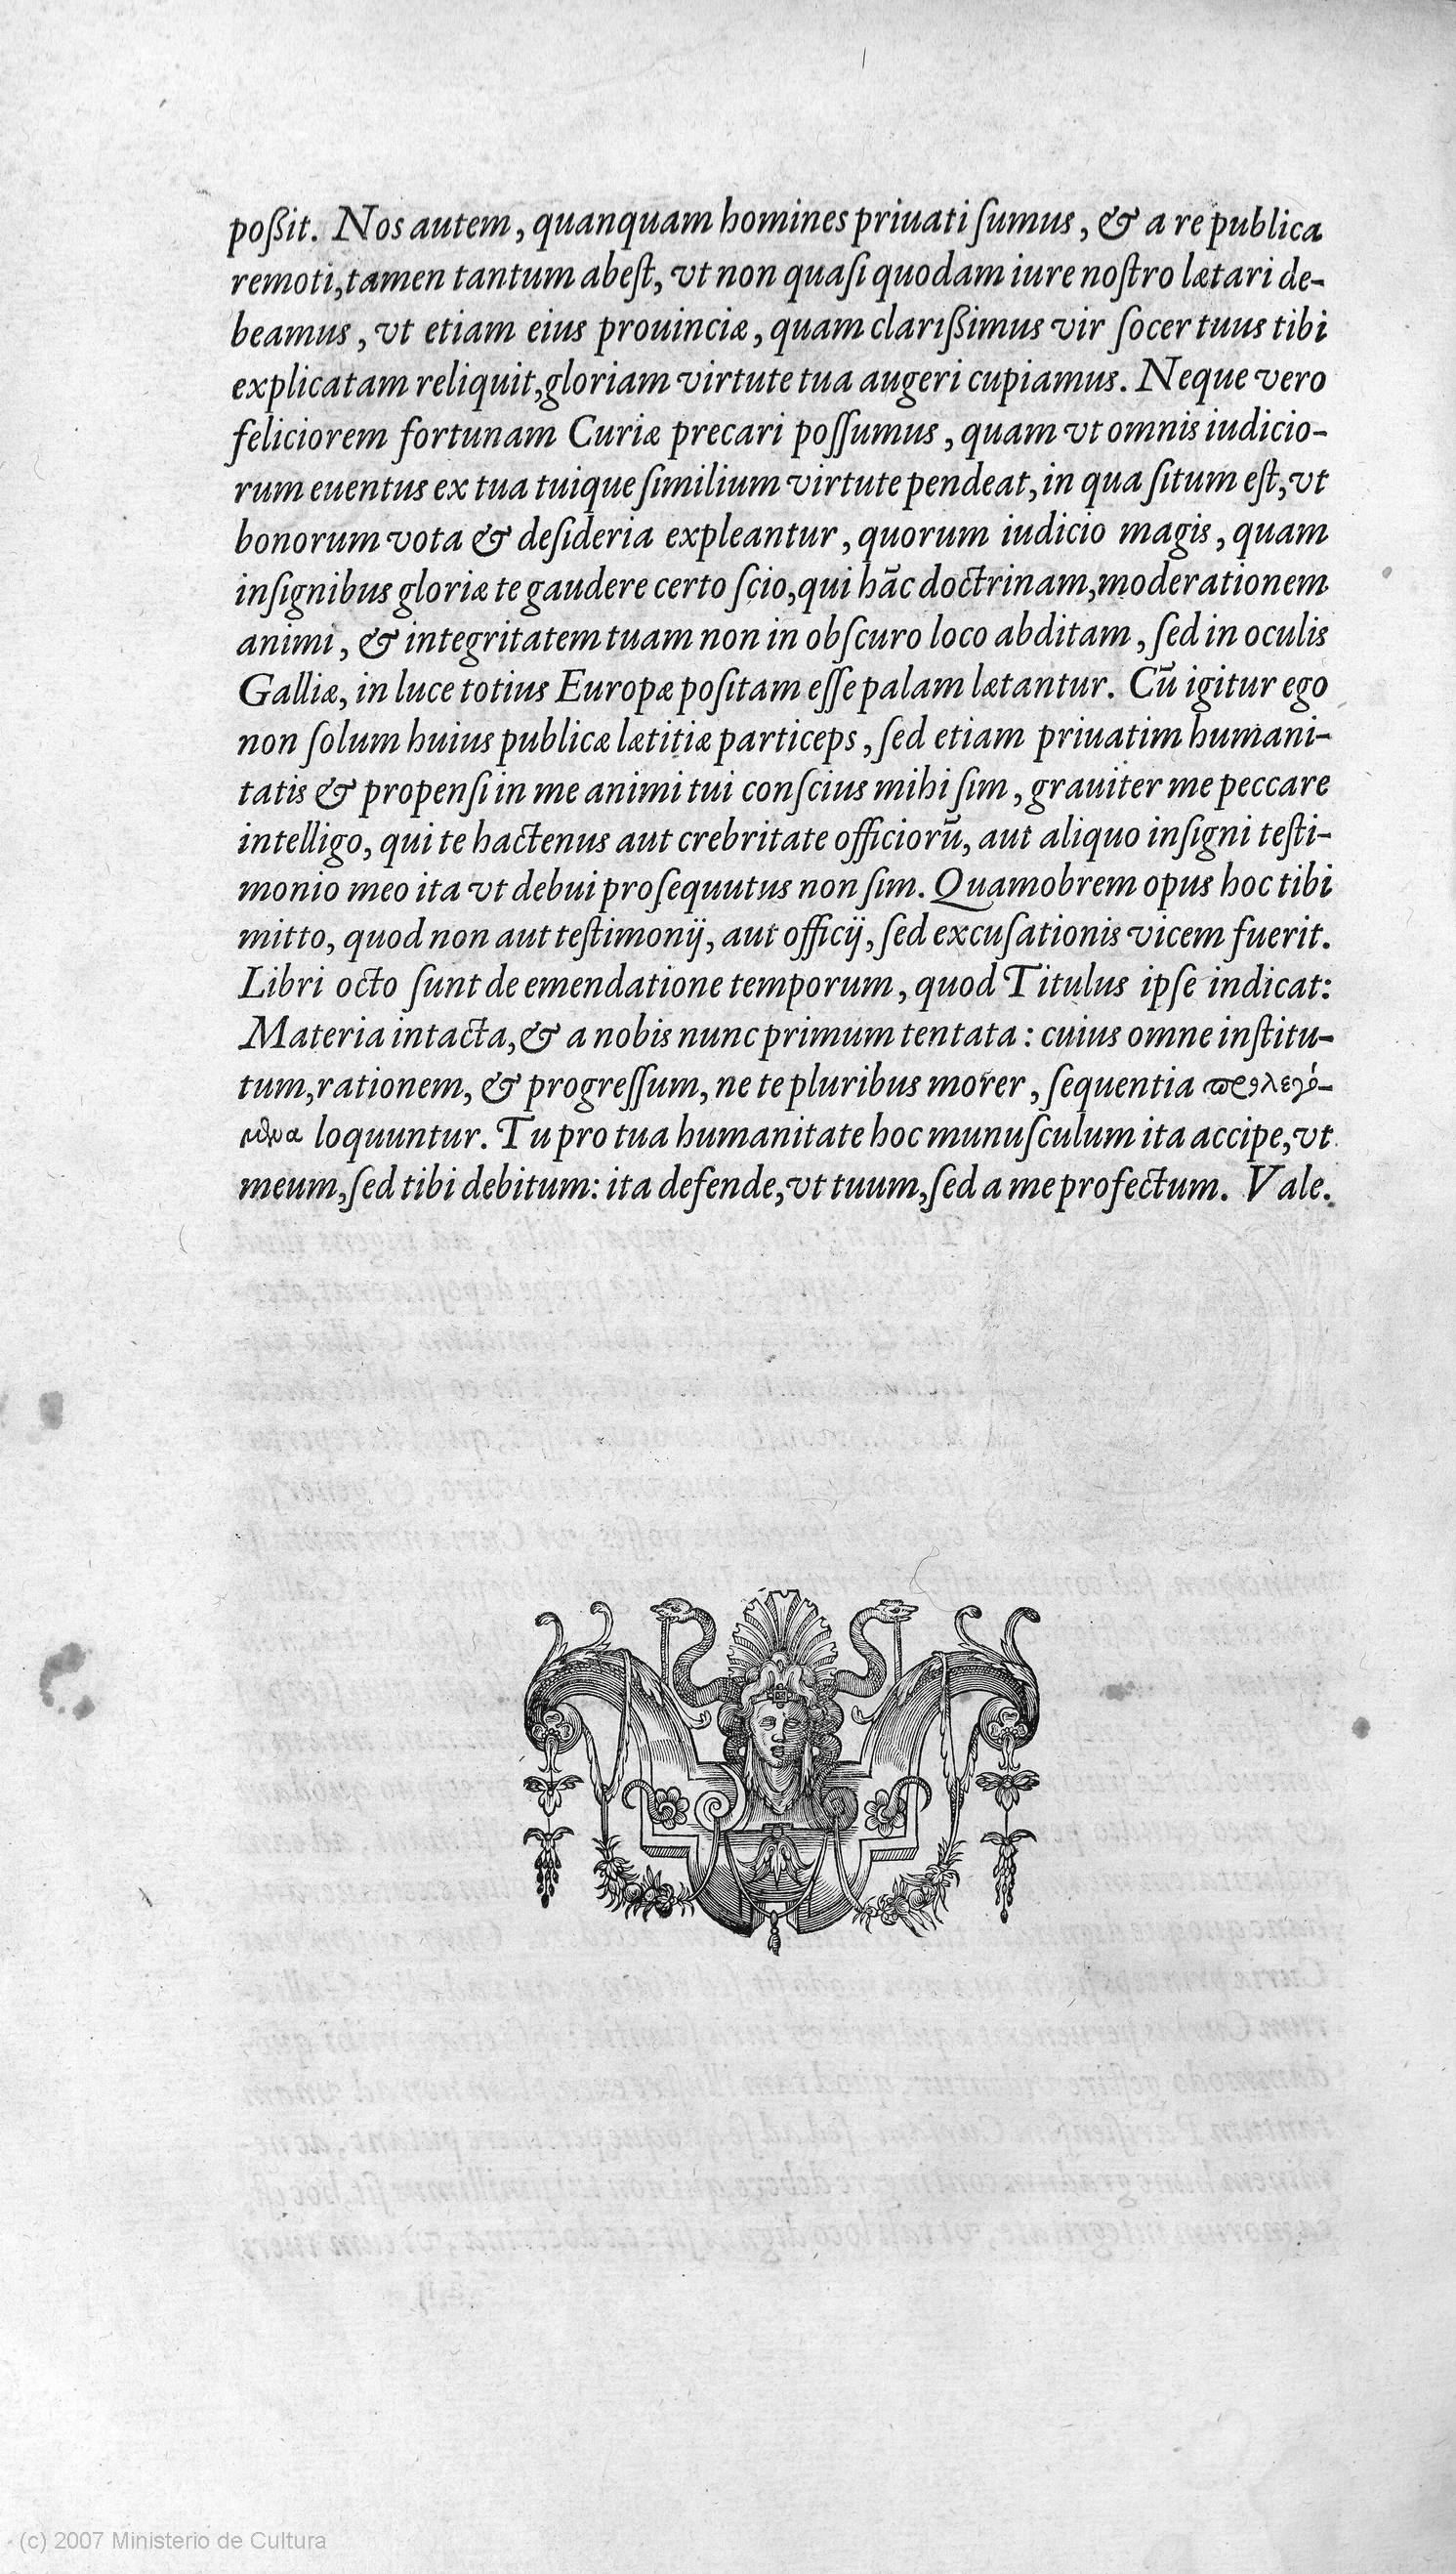 poßit. Nos autem, quanquam homines priuati ſumus, & a re publica
remoti, tamen tantum abeſt, vt non quaſi quodam iure noſtro lætari de-
beamus, vt etiam eius prouinciæ, quam clarißimus vir ſocer tuus tibi
explicatam reliquit, gloriam virtute tua augeri cupiamus. Neque vero
feliciorem fortunam Curiæ precari poſſumus, quam vt omnis iudicio-
rum euentus ex tua tuique ſimilium virtute pendeat, in qua ſitum eſt, vt
bonorum vota & deſideria expleantur, quorum iudicio magis, quam
inſignibus gloriæ te gaudere certo ſcio, qui hāc doctrinam, moderationem
animi, & integritatem tuam non in obſcuro loco abditam, ſed in oculis
Galliæ, in luce totius Europæ poſitam eſſe palam lætantur. Cū igitur ego
non ſolum huius publicæ lætitiæ particeps, ſed etiam priuatim humani-
tatis & propenſi in me animi tui conſcius mihi ſim, grauiter me peccare
intelligo, qui te hactenus aut crebritate officiorū, aut aliquo inſigni teſti-
monio meo ita vt debui proſequutus non ſim. Quamobrem opus hoc tibi
mitto, quod non aut teſtimonij, aut officij, ſed excuſationis vicem fuerit.
Libri octo ſunt de emendatione temporum, quod Titulus ipſe indicat:
Materia intacta, & a nobis nunc primum tentata: cuius omne inſtitu-
tum, rationem, & progreſſum, ne te pluribus morer, ſequentia προλεγό-
μθνα loquuntur. Tu pro tua humanitate hoc munuſculum ita accipe, vt
meum, ſed tibi debitum: ita defende, vt tuum, ſed a me profectum. Vale.
(c) 2007 Ministerio de Cultura